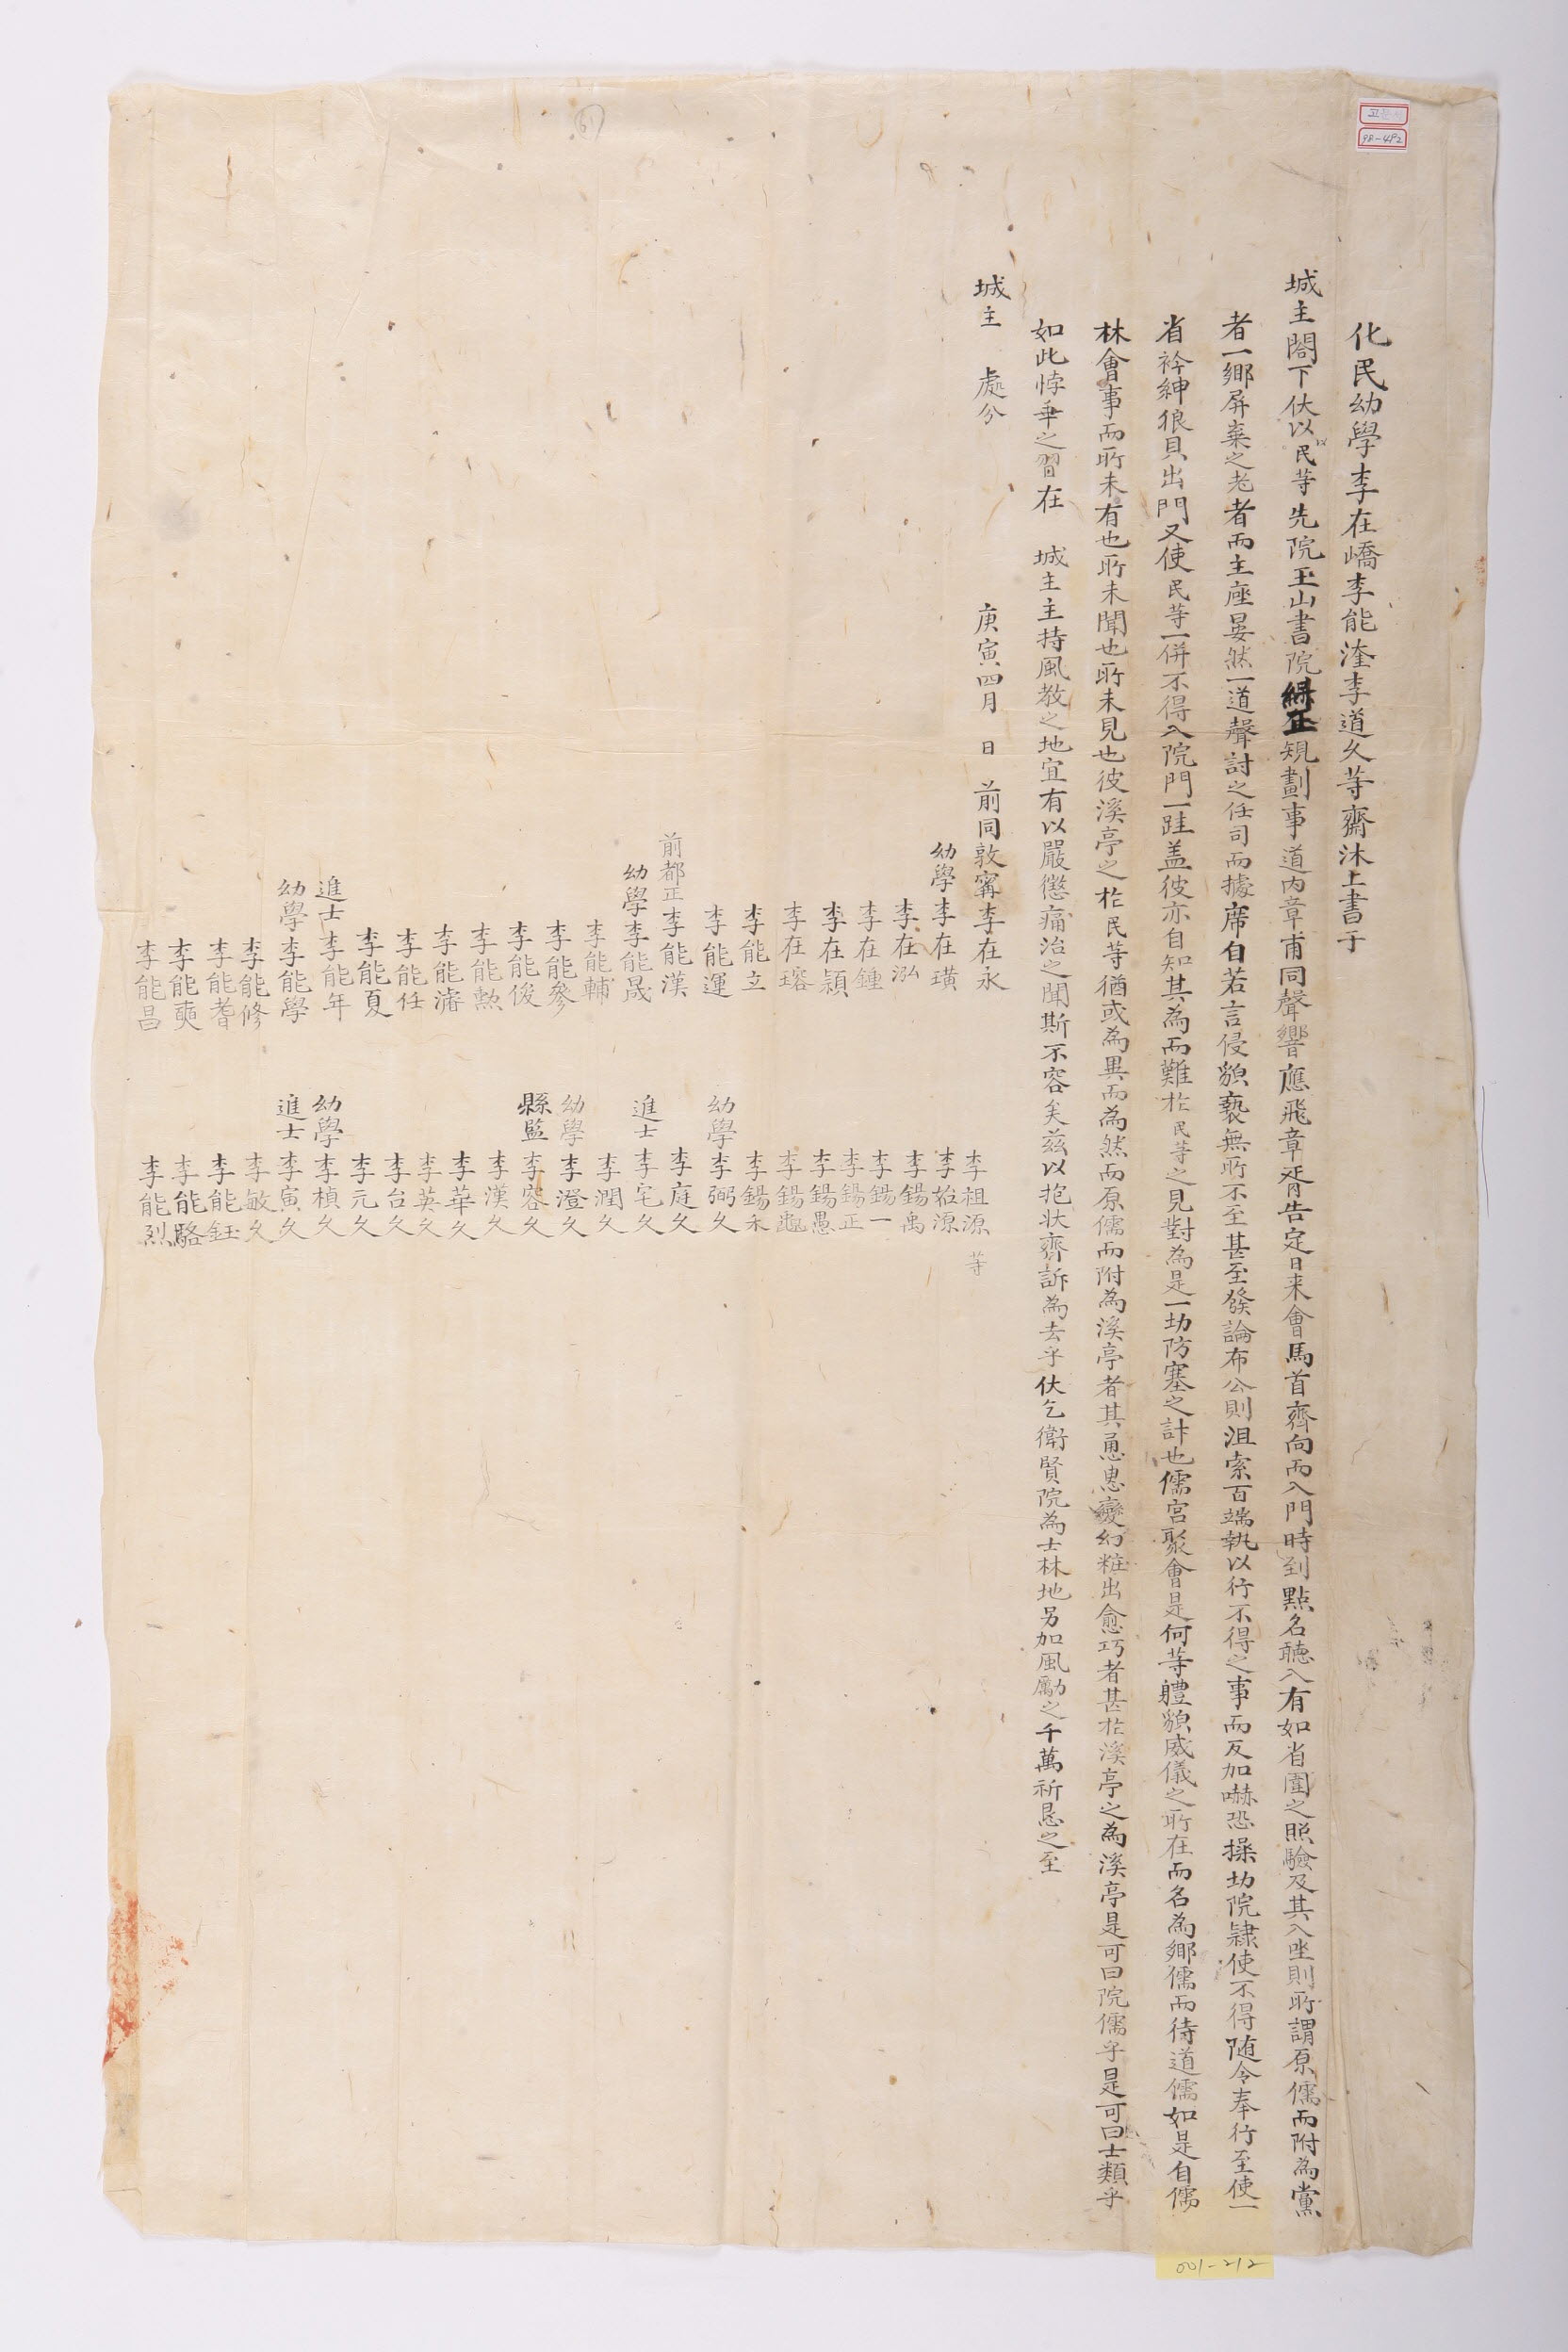 化民幼學李在嶠李能漄李道久等齋沐上書于
城主閤下伏以民等先院玉山書院綠正規劃事道内章甫同聲響應飛章胥告定日来會馬首齊向而入門時到點名聽入有如省圍之照驗及其入坐則所謂原儒而附為黨
者一鄉屏棄之老者而主座晏然一道聲討之任司而據席自若言侵貌褻無所不至甚至發論布公則沮索百端執以行不得之事而反加嚇恐操切院隷使不得随令奉行至使一
省衿紳狼貝出門又使民等一併不得入院門一跬盖彼亦自知其為而難於民等之見對為是一切防塞之計也儒宮聚會是何等軆貌威儀之所在而名為鄉儒而待道儒如是自儒
林會事而所未有也所未聞也所未見也彼溪亭之於民等猶或為異而為然而原儒而附為溪亭者其慂惥變幻粧出愈巧者甚於溪亭之為溪亭是可曰院儒乎是可曰士類乎
如此悖乖之習在 城主主持風敎之地宜有以嚴懲痛治之聞斯不容矣玆以抱狀齊訴為去乎伏乞衛賢院為士林地另加風勵之千萬祈恳之至
城主 處分 庚寅四月 日 前同敦寗李在永
李祖源 等
幼學李在璜 李始源
李在泓 李鍚禹
李在鍾 李鍚一
李在穎 李鍚正
李在瑢 李鍚愚
李能立 李鍚龜
李能運 李鍚永
前都正李能漢 幼學李弼久
幼學李能晟 李庭久
李能輔 進士李宅久
李能參 李潤久
李能俊 幼學李澄久
李能勲 縣監李容久
李能濬 李漢久
李能任 李華久
李能夏 李英久
進士李能年 李台久
幼學李能學 李元久
李能修 幼學李楨久
李能耆 進士李寅久
李能奭 李敏久
李能昌 李能鈺
李能駱
李能烈
61
98-492
001-212